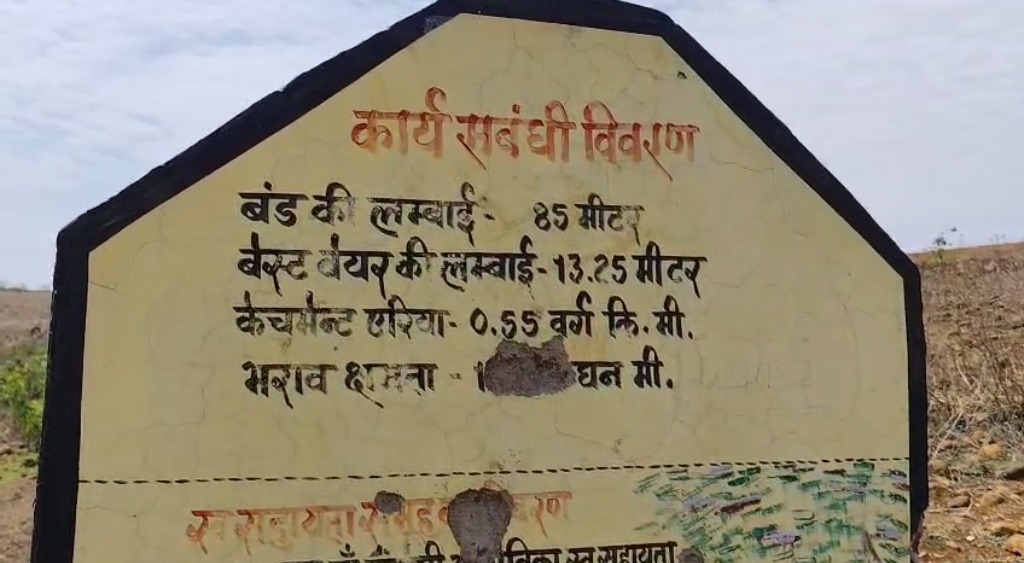 कार्य सबंधी विवरण
बंड की लम्बाई - 85 मीटर
वेस्ट वेयर की लम्बाई - 13.25 मीटर
केचमेन्ट एरिया - 0.55 वर्ग कि. मी.
भराव क्षमता - घन मी.
स्व सहायता समूह
स्व सहायता